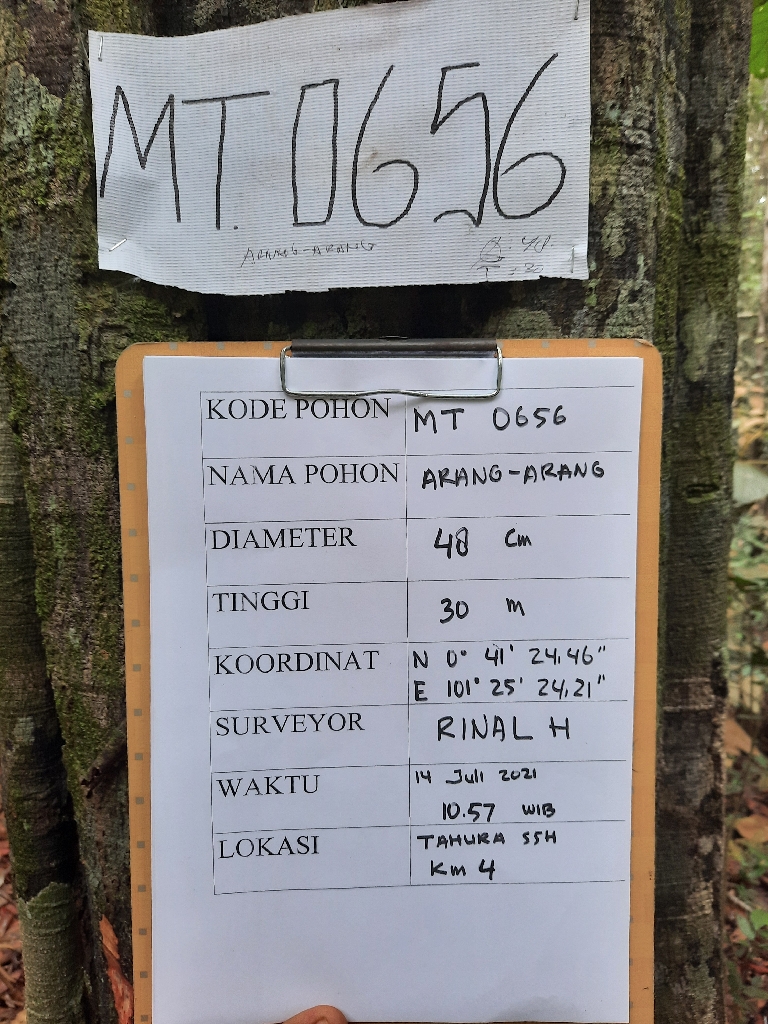 MT. 0656
ARANG-ARANG
KODE POHON MT 0656
NAMA POHON ARANG-ARANG
DIAMETER 48 Cm
TINGGI 30 m
KOORDINAT N 0° 41' 24,46"
E 101° 25' 24,21"
SURVEYOR RINAL H
WAKTU 14 Juli 2021
10.57 WIB
LOKASI TAHURA SSH
Km 4